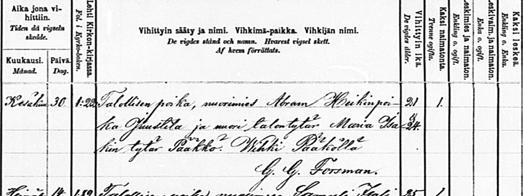 Aika jona vihittiin.
Tiden då vigseln skedde.
Kuukausi.
Månad.
Päivä.
Dag.
Lehti Kirkon-kirjassa.
Fol. i Kyrkoboken.
Vihittyin sääty ja nimi. Vihkimä-paikka. Vihkijän nimi.
De vigdes stånd och namn. Hvarest vigsel skett.
Af hvem förrättats.
Vihittyin ikä.
De vigdes ålder.
Kaksi naimatonta.
Tvenne ogifta.
Leskimies ja naimaton.
Enkling o. ogift.
Kaksi leskeä.
Kesäkuu 30. 1:22 Talollisen poika, nuorimies Abram Heikinpoi- 21 1.
ka Junttila ja nuori talontytär Maria Isa- & 24.
kin tytär Pääkkö. Vihki Pääköllä
G. G. Forsman.